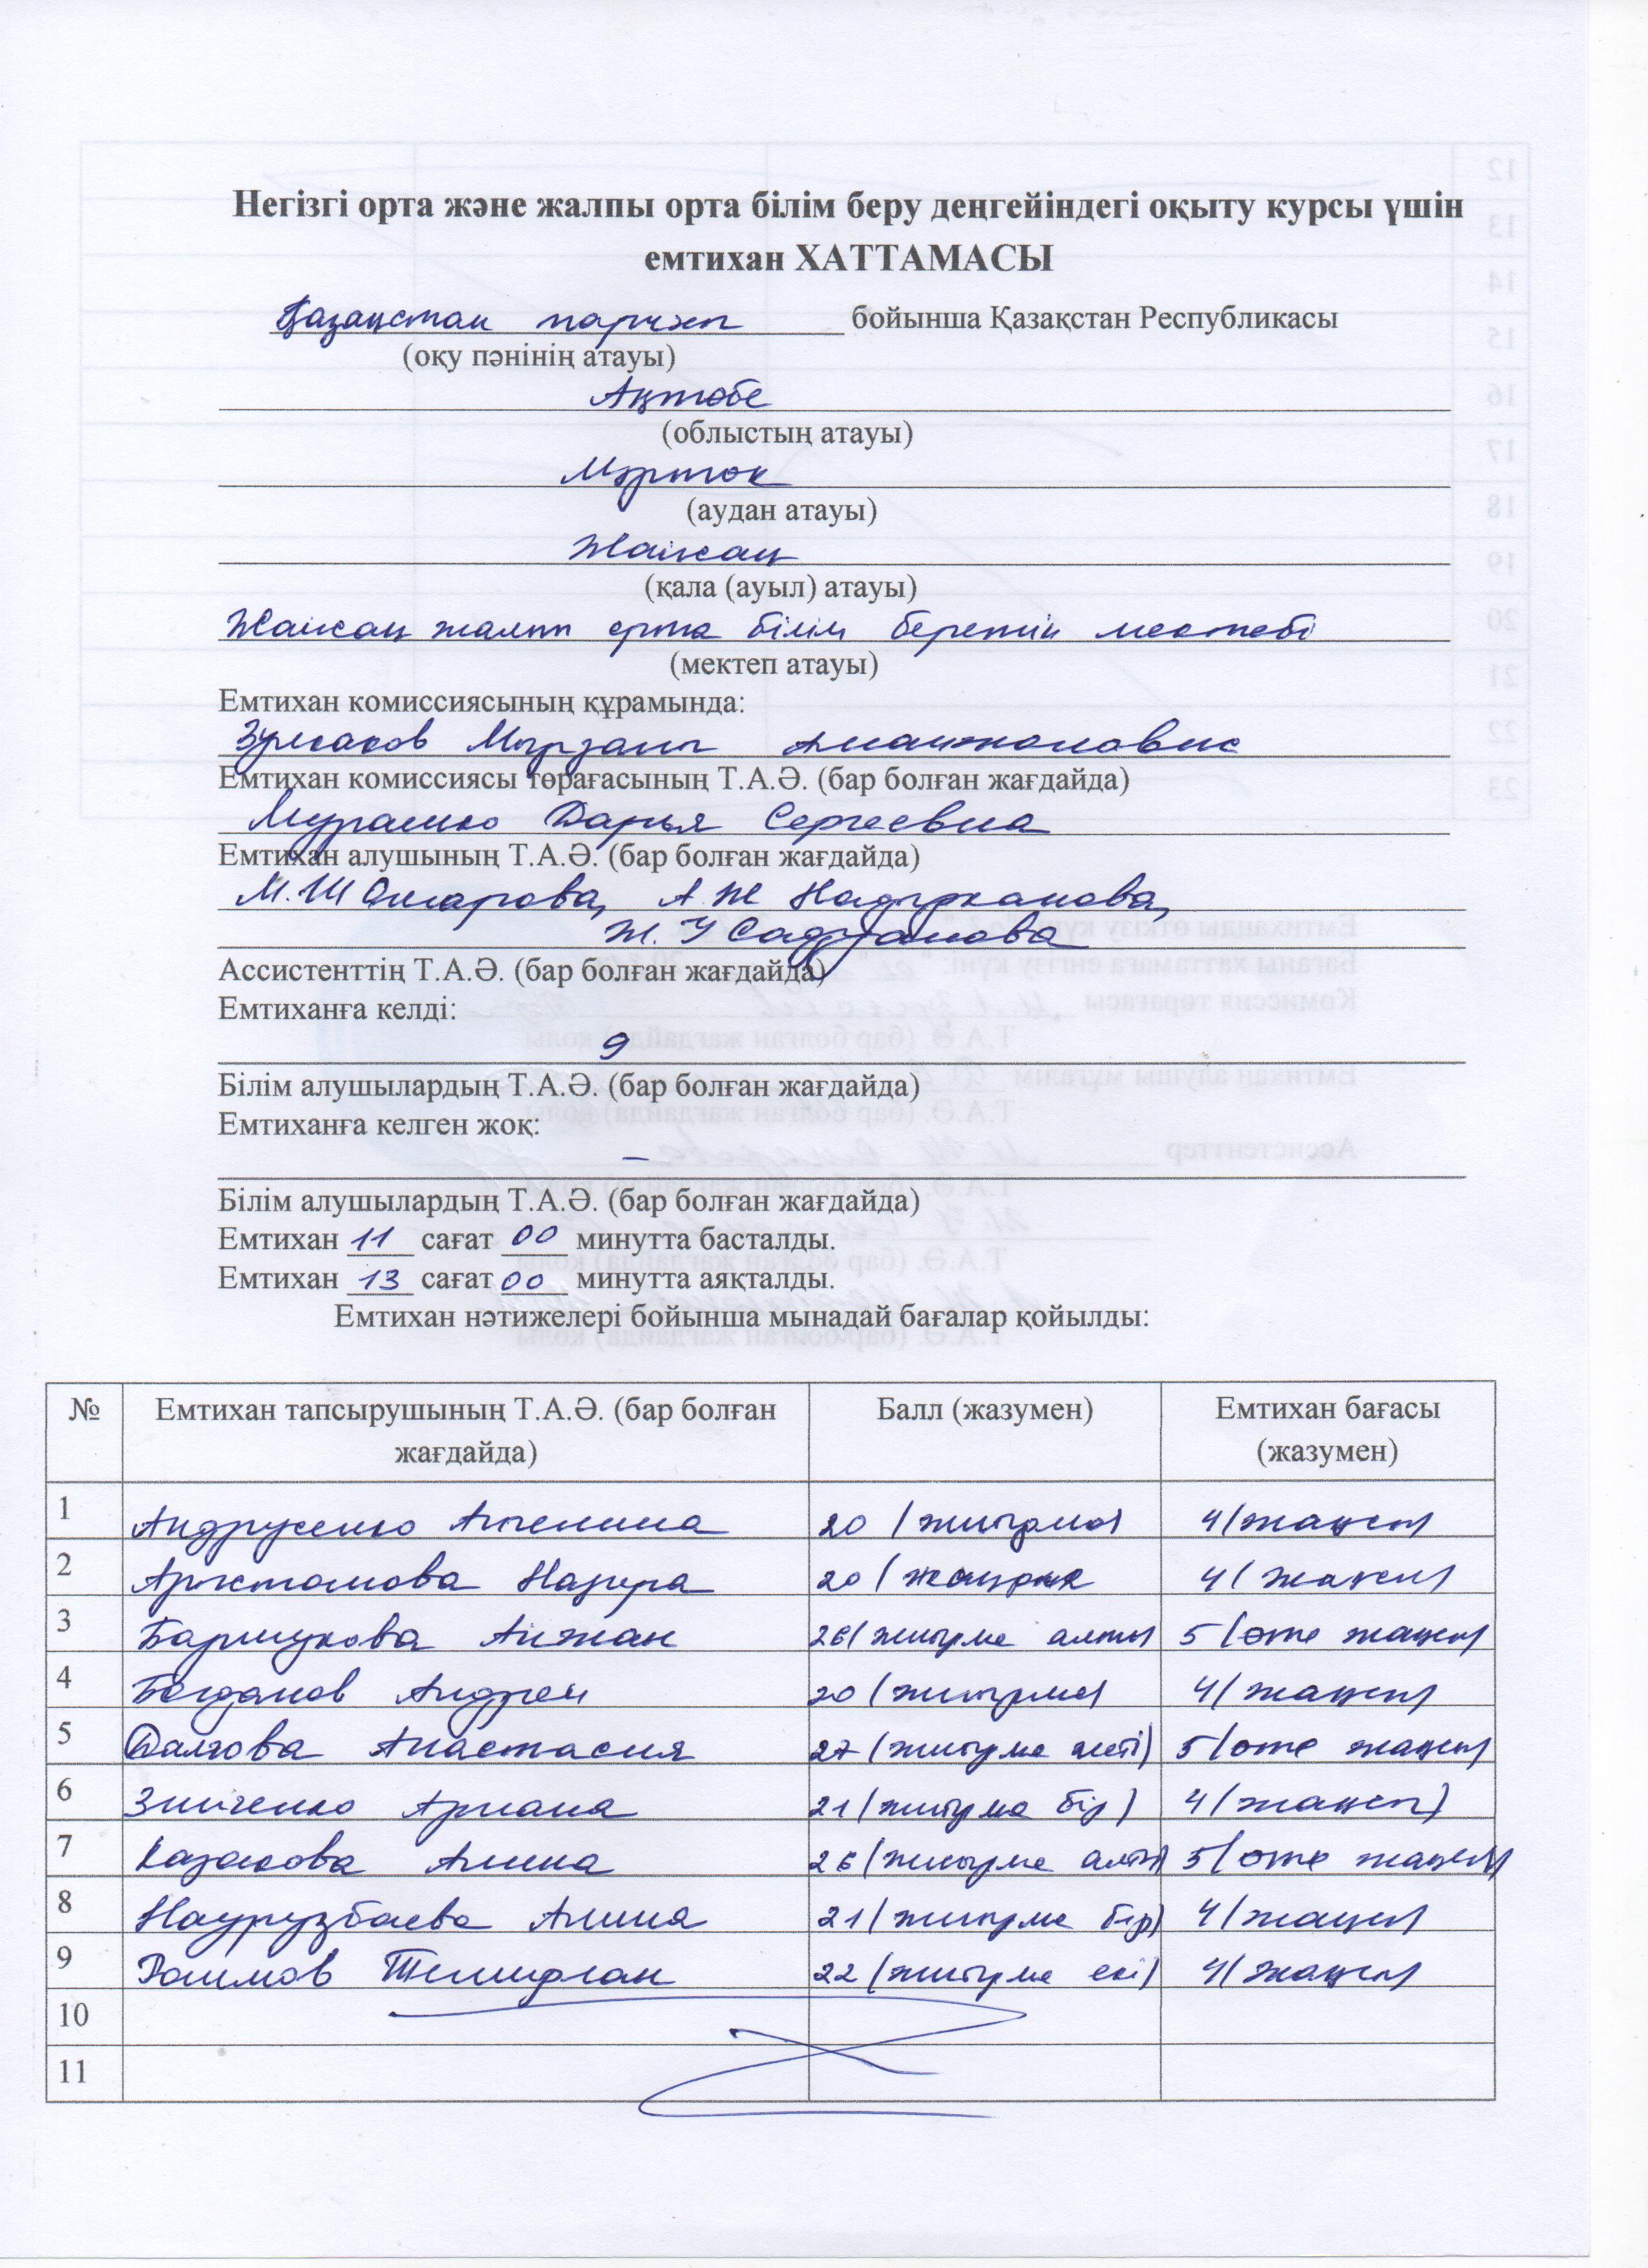 Негізгі орта және жалпы орта білім беру деңгейіндегі оқыту курсы үшін
емтихан ХАТТАМАСЫ
Қазақстан тарихы бойынша Қазақстан Республикасы
(оқу пәнінің атауы)
Ақтөбе
(облыстың атауы)
Мәртөк
(аудан атауы)
Жайсаң
(қала (ауыл) атауы)
Жайсаң жалпы орта білім беретін мектебі
(мектеп атауы)
Емтихан комиссиясының құрамында:
Мырзалы
Емтихан комиссиясы төрағасының Т.А.Ә. (бар болған жағдайда)
Мурашко Дарья Сергеевна
Емтихан алушының Т.А.Ә. (бар болған жағдайда)
М.Ш Омарова, А Ж
Ж. У
Ассистенттің Т.А.Ә. (бар болған жағдайда)
Емтиханға келді:
9
Білім алушылардың Т.А.Ә. (бар болған жағдайда)
Емтиханға келген жоқ:
–
Білім алушылардың Т.А.Ә. (бар болған жағдайда)
Емтихан 11 сағат 00 минутта басталды.
Емтихан 13 сағат 00 минутта аяқталды.
Емтихан нәтижелері бойынша мынадай бағалар қойылды:
№ Емтихан тапсырушының Т.А.Ә. (бар болған жағдайда) Балл (жазумен) Емтихан бағасы (жазумен)
1 Андрусенко 20 (жиырма) 4 (жақсы)
2 Арыстамова Назира 20 (жиырма 4 (жақсы)
3 Айжан 26 (жиырма алты) 5 (өте жақсы)
4 Богданов Андрей 20 (жиырма) 4 (жақсы)
5 Далгова Анастасия 27 (жиырма жеті) 5 (өте жақсы)
6 Зинченко Ариана 21 (жиырма бір) 4 (жақсы)
7 Казакова Алина 26 (жиырма алты) 5 (өте жақсы)
8 Наурузбаева Алина 21 (жиырма бір) 4 (жақсы)
9 Раимов 22 (жиырма екі) 4 (жақсы)
10
11